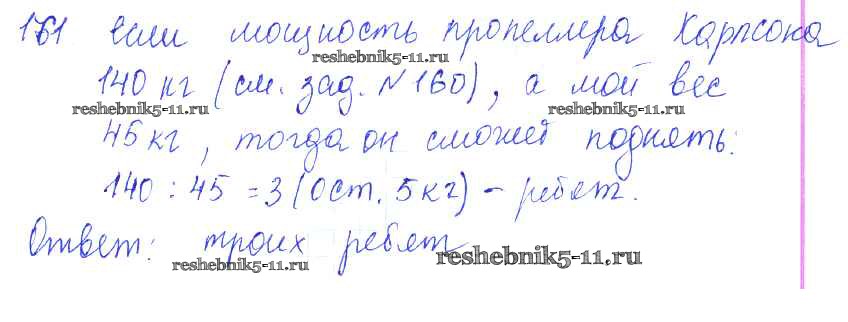 161 Если мощность пропеллера Карлсона
reshebnik5-11.ru
140 кг (см. зад. №160), а мой вес
reshebnik5-11.ru reshebnik5-11.ru
45 кг, тогда он сможет поднять:
140 : 45 = 3 (ост. 5 кг) – ребят.
Ответ: троих ребят
reshebnik5-11.ru reshebnik5-11.ru